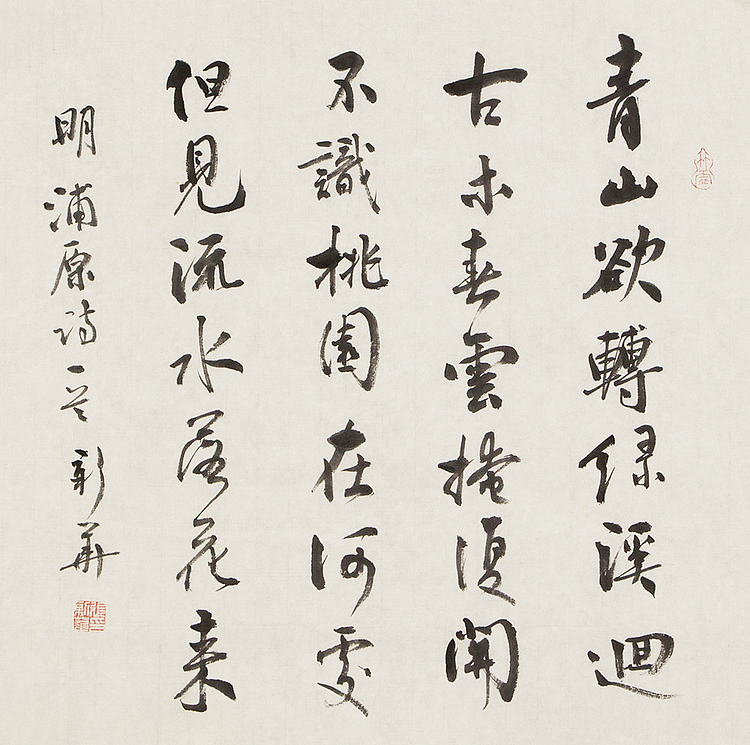 青山欲轉绿溪迴
古木春雲掩復開
不識桃園在何處
但見流水落花来
明浦原诗一首新華